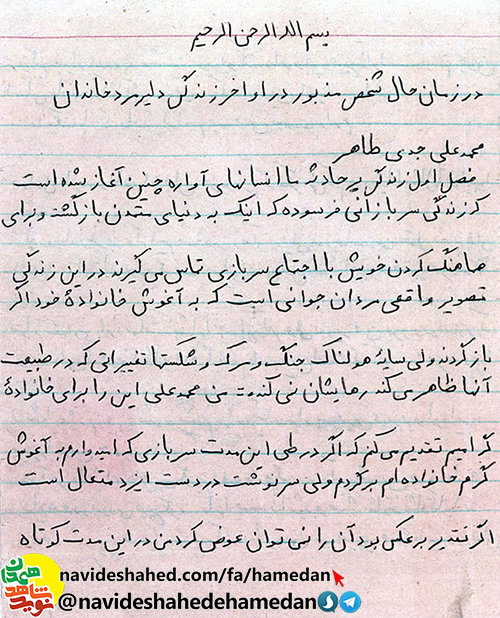 بسم الله الرحمن الرحیم
در زمان حال شخص مذبور در اواخر زندگی دلیر مرد خاندان
محمد علی جدی طاهر
فصل اول زندگی پر حادثه با انسانهای آواره چنین آغاز شده است
که زندگی سربازانی فرسوده که اینک به دنیای متمدن بازگشت و برای
هماهنگ کردن خویش با اجتماع سربازی تماس می گیرند در این زندگی
تصویر واقعی مردان جوانی است که به آغوش خانوادهٔ خود اگر
باز کردند ولی سایهٔ هولناک جنگ و مرگ و شکستها تغییراتی که در طبیعت
آنها ظاهر می کند رهایشان نمی کند من محمد علی این را برای خانوادهٔ
گرامیم تقدیم می کنم که اگر در طی این مدت سربازی که امیدوارم به آغوش
گرم خانواده ام برگردم ولی سرنوشت در دست ایزد متعال است
اگر تقدیر برعکس بود آن را نمی توان عوض کرد من در این مدت کوتاه
navideshahed.com/fa/hamedan
@navideshahedehamedan
نوید شاهد همدان